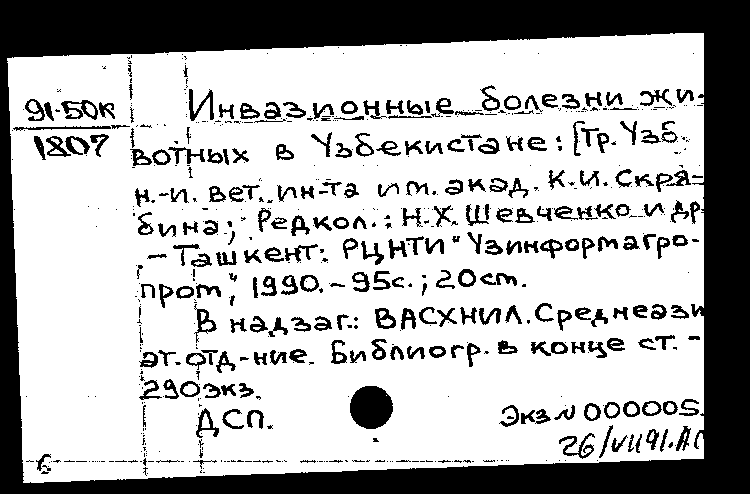 91-50к Инвазионные болезни жи-
1807 вотных в Узбекистане: [Тр. Узб.
н.-и. вет. ин-та им. акад. К.И. Скря-
бина; Редкол.: Н.Х. Шевченко и др
. - Ташкент: РЦНТИ "Узинформагро-
пром", 1990. - 95с.; 20 cm.
В надзаг.: ВАСХНИЛ. Среднеази
ат. отд-ние. Библиогр. в конце ст. -
290 экз.
ДСП. Экз N 000005.
26/VII91.
6